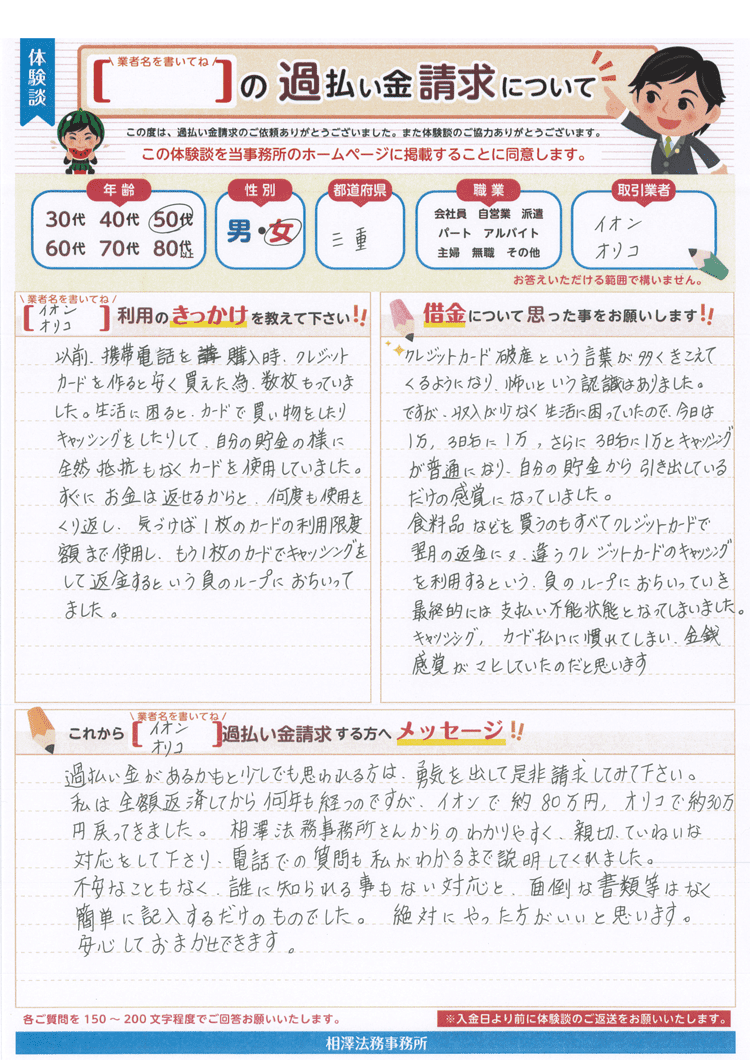 体験談
\ 業者名を書いてね /
[ ] の 過払い金請求について
この度は、過払い金請求のご依頼ありがとうございました。また体験談のご協力ありがとうございます。
この体験談を当事務所のホームページに掲載することに同意します。
年齢 性別 都道府県 職業 取引業者
30代 40代 50代
60代 70代 80代以上
男・女
三重
会社員 自営業 派遣
パート アルバイト
主婦 無職 その他
イオン
オリコ
お答えいただける範囲で構いません。
\ 業者名を書いてね /
[ イオン
オリコ ] 利用のきっかけを教えて下さい!!
以前、携帯電話を 購入時、クレジット
カードを作ると安く買えた為、数枚もっていま
した。生活に困ると、カードで買い物をしたり
キャッシングをしたりして、自分の貯金の様に
全然抵抗もなくカードを使用していました。
すぐに お金は返せるからと、何度も使用を
くり返し、気づけば1枚のカードの利用限度
額まで使用し、もう1枚のカードでキャッシングを
して返金するという負のループにおちいって
ました。
借金について思った事をお願いします!!
クレジットカード破産という言葉が多くきこえて
くるようになり、怖いという認識はありました。
ですが、収入が少なく生活に困っていたので、今日は
1万、3日后に1万、さらに3日后に1万とキャッシング
が普通になり、自分の貯金から引き出している
だけの感覚になっていました。
食料品などを買うのもすべてクレジットカードで
翌月の返金に又、違うクレジットカードのキャッシング
を利用するという、負のループにおちいっていき
最終的には支払い不能状態となってしまいました。
キャッシング、カード払いに慣れてしまい、金銭
感覚がマヒしていたのだと思います
\ 業者名を書いてね /
これから [ イオン
オリコ ] 過払い金請求する方へ メッセージ!!
過払い金があるかもと少しでも思われる方は、勇気を出して是非請求してみて下さい。
私は全額返済してから何年も経つのですが、イオンで約80万円、オリコで約30万
円戻ってきました。 相澤法務事務所さんからのわかりやすく、親切、ていねいな
対応をして下さり、電話での質問も私がわかるまで説明してくれました。
不安なこともなく、誰に知られる事もない対応と、面倒な書類等はなく
簡単に記入するだけのものでした。 絶対にやった方がいいと思います。
安心しておまかせできます。
各ご質問を150〜200文字程度でご回答お願いいたします。
※入金日より前に体験談のご返送をお願いいたします。
相澤法務事務所